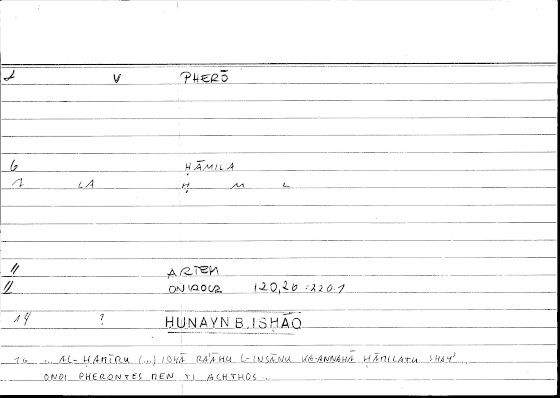 2 V PHERŌ
6 ḤĀMILA
7 LA Ḥ M L
11 ARTEM
12 ONIROCR 120,26 = 220,1
14 ? ḤUNAYN B. ISḤĀQ
16 ... AL-ḤAMĪRU (...) IḎĀ RAʾĀHU L-INSĀNU KA-ANNAHĀ ḤĀMILATU SHAYʾ...
ONOI PHERONTES MEN TI ACHTHOS ...